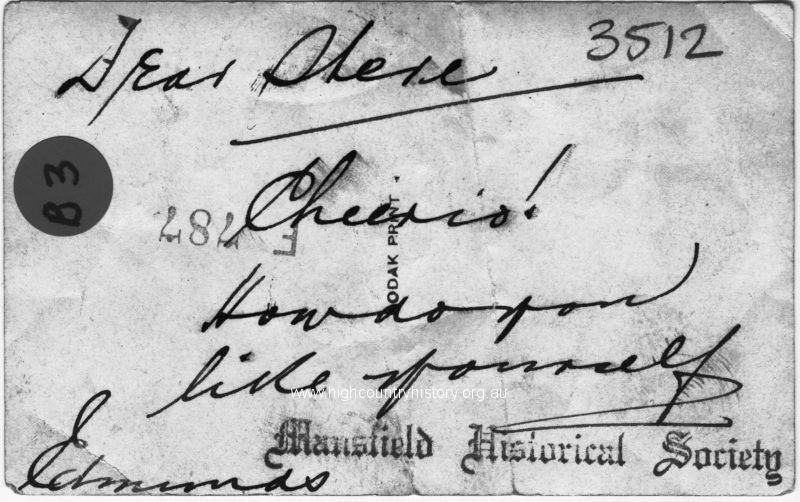 3512
Dear Steve
B3
Cheerio!
F 787
KODAK PRINT
How do you
like yourself
www.highcountryhistory.org.au
Mansfield Historical Society
Edmunds